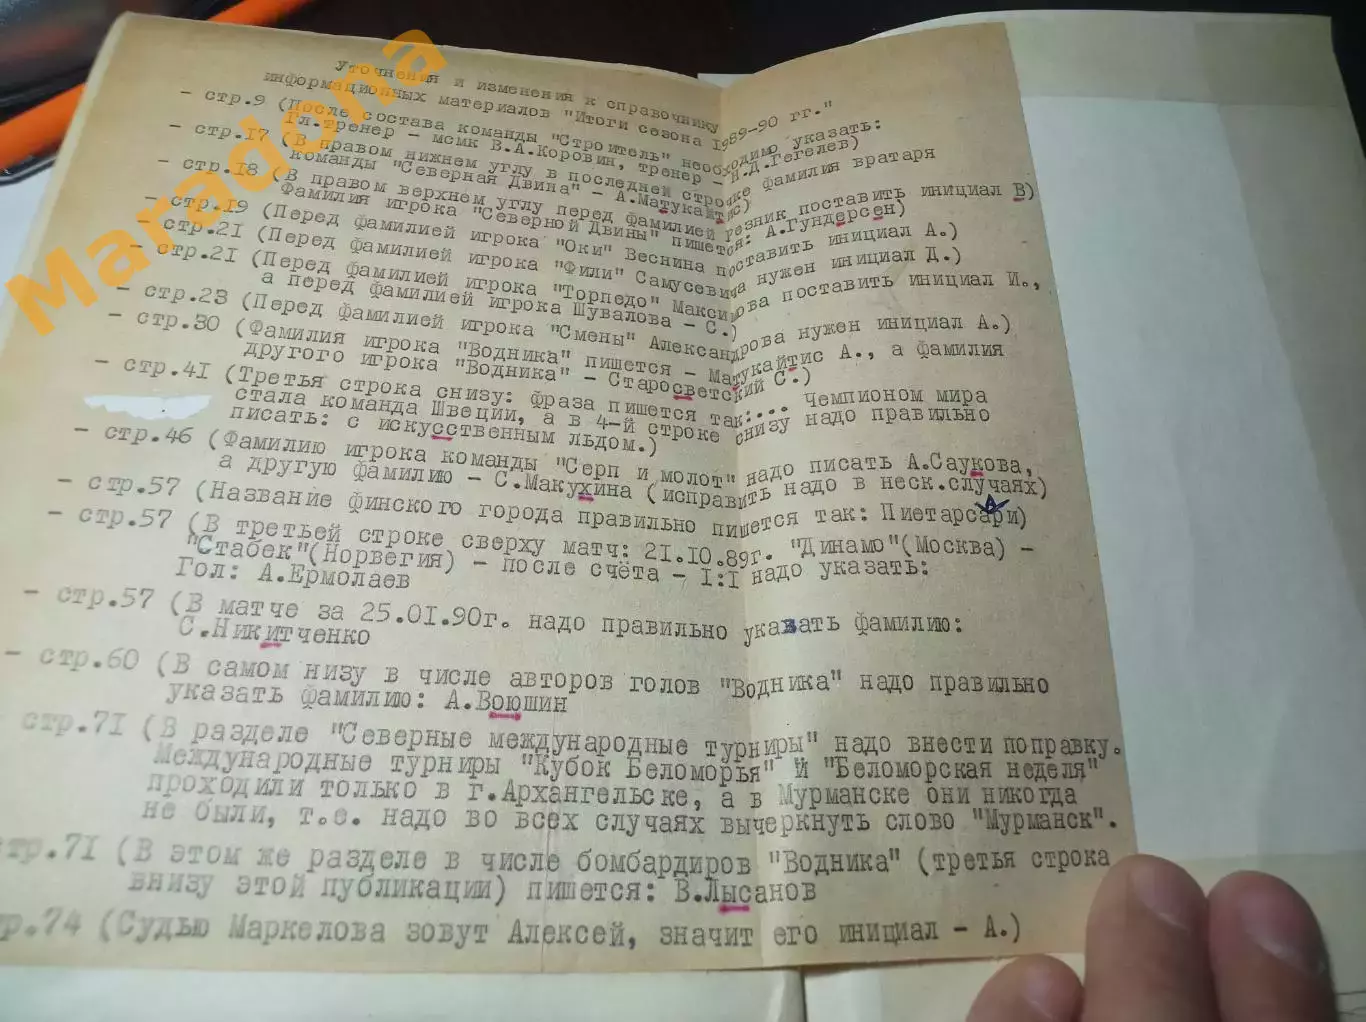 Maradona
Уточнения и изменения к справочнику
информационных материалов "Итоги сезона 1989-90 гг."
- стр.9 (После состава команды "Строитель" необходимо указать:
Гл.тренер - мсмк В.А.Коровин, тренер - Н.Д.Гегелев)
- стр.17 (В правом нижнем углу в последней строчке фамилия вратаря
команды "Северная Двина" - А.Матукайтис)
- стр.18 (В правом верхнем углу перед фамилией Резник поставить инициал В)
Фамилия игрока "Северной Двины" пишется: А.Гундерсен)
- стр.19 (Перед фамилией игрока "Оки" Веснина поставить инициал А.)
- стр.21 (Перед фамилией игрока "Фили" Самусевича нужен инициал Д.)
- стр.21 (Перед фамилией игрока "Торпедо" Максимова поставить инициал И.,
а перед фамилией игрока Шувалова - С.)
- стр.23 (Перед фамилией игрока "Смены" Александрова нужен инициал А.)
- стр.30 (Фамилия игрока "Водника" пишется - Матукайтис А., а фамилия
другого игрока "Водника" - Старосветский С.)
- стр.41 (Третья строка снизу: фраза пишется так:... Чемпионом мира
стала команда Швеции, а в 4-й строке снизу надо правильно
писать: с искусственным льдом.)
- стр.46 (Фамилию игрока команды "Серп и молот" надо писать А.Саукова,
а другую фамилию - С.Макухина (исправить надо в неск.случаях)
- стр.57 (Название финского города правильно пишется так: Пиетарсари)
- стр.57 (В третьей строке сверху матч: 21.10.89г. "Динамо"(Москва) -
"Стабек"(Норвегия) - после счёта - 1:1 надо указать:
Гол: А.Ермолаев
- стр.57 (В матче за 25.01.90г. надо правильно указать фамилию:
С.Никитченко
- стр.60 (В самом низу в числе авторов голов "Водника" надо правильно
указать фамилию: А.Воюшин
стр.71 (В разделе "Северные международные турниры" надо внести поправку.
Международные турниры "Кубок Беломорья" и "Беломорская неделя"
проходили только в г.Архангельске, а в Мурманске они никогда
не были, т.е. надо во всех случаях вычеркнуть слово "Мурманск".
стр.71 (В этом же разделе в числе бомбардиров "Водника" (третья строка
внизу этой публикации) пишется: В.Лысанов
р.74 (Судью Маркелова зовут Алексей, значит его инициал - А.)